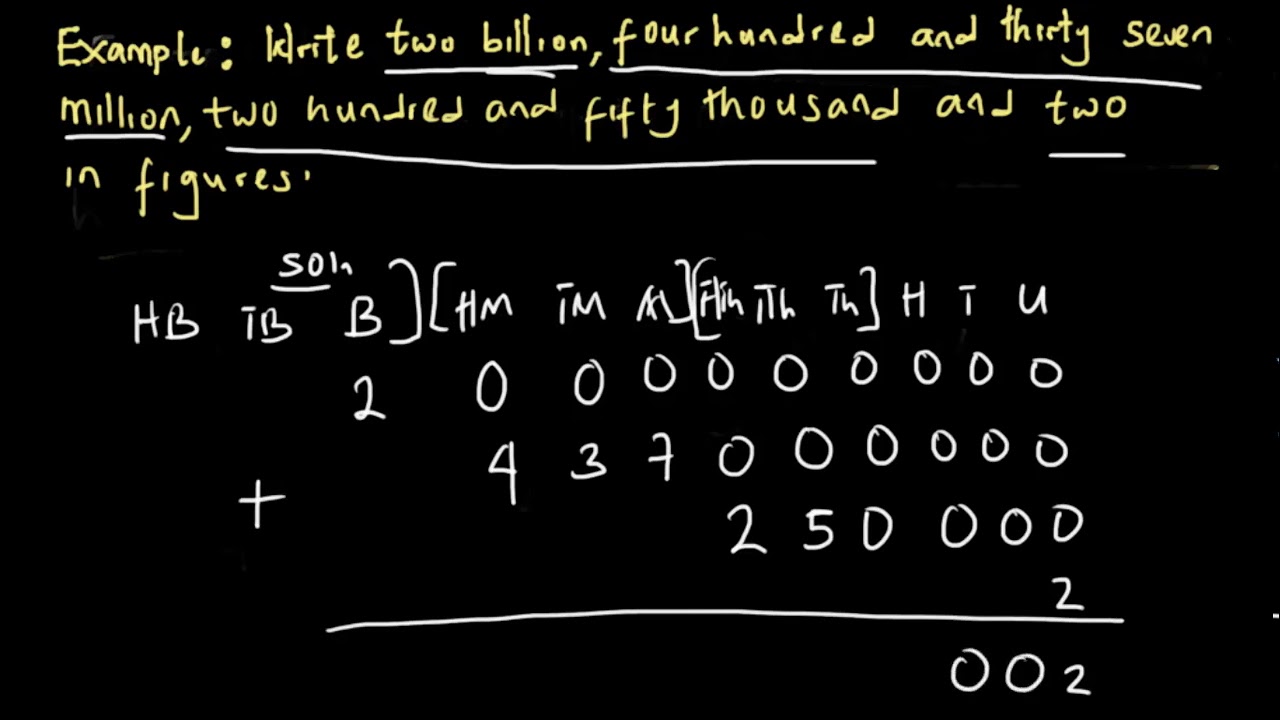 Example: Write two billion, four hundred and thirty seven
million, two hundred and fifty thousand and two
in figures.
soln
HB TB B] [HM TM M] [HTh TTh Th] H T U
2 0 0 0 0 0 0 0 0 0
4 3 7 0 0 0 0 0 0
+ 2 5 0 0 0 0
2
0 0 2